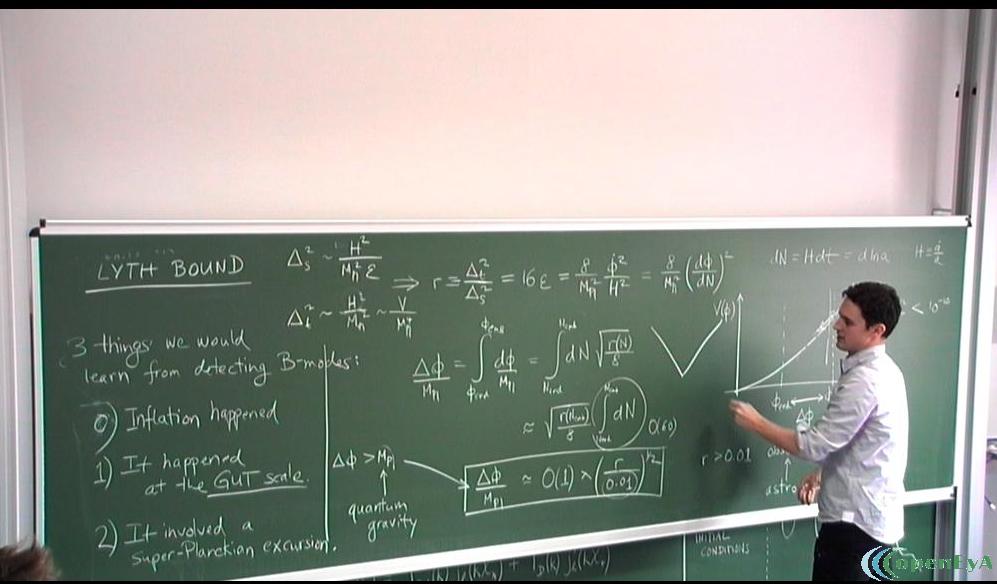 LYTH BOUND
Δ_s² ~ H²/(M_pl² ε)
Δ_t² ~ H²/M_pl² ~ V/M_pl⁴
⇒ r ≡ Δ_t²/Δ_s² = 16ε = 8/M_pl² φ̇²/H² = 8/M_pl² (dφ/dN)²
dN = Hdt = d ln a
H = ȧ/a
3 things we would
learn from detecting B-modes:
0) Inflation happened
1) It happened
at the GUT scale.
2) It involved a
super-Planckian excursion.
Δφ/M_pl = ∫ dφ/M_pl = ∫ dN √(r(N)/8)
≈ √(r(N)/8) ∫ dN
O(60)
Δφ > M_pl
quantum
gravity
Δφ/M_pl ≈ O(1) × (r/0.01)^1/2
V(φ)
φ_end
Δφ
< 10⁻¹⁰
r > 0.01
astro
INITIAL
CONDITIONS
openEyA